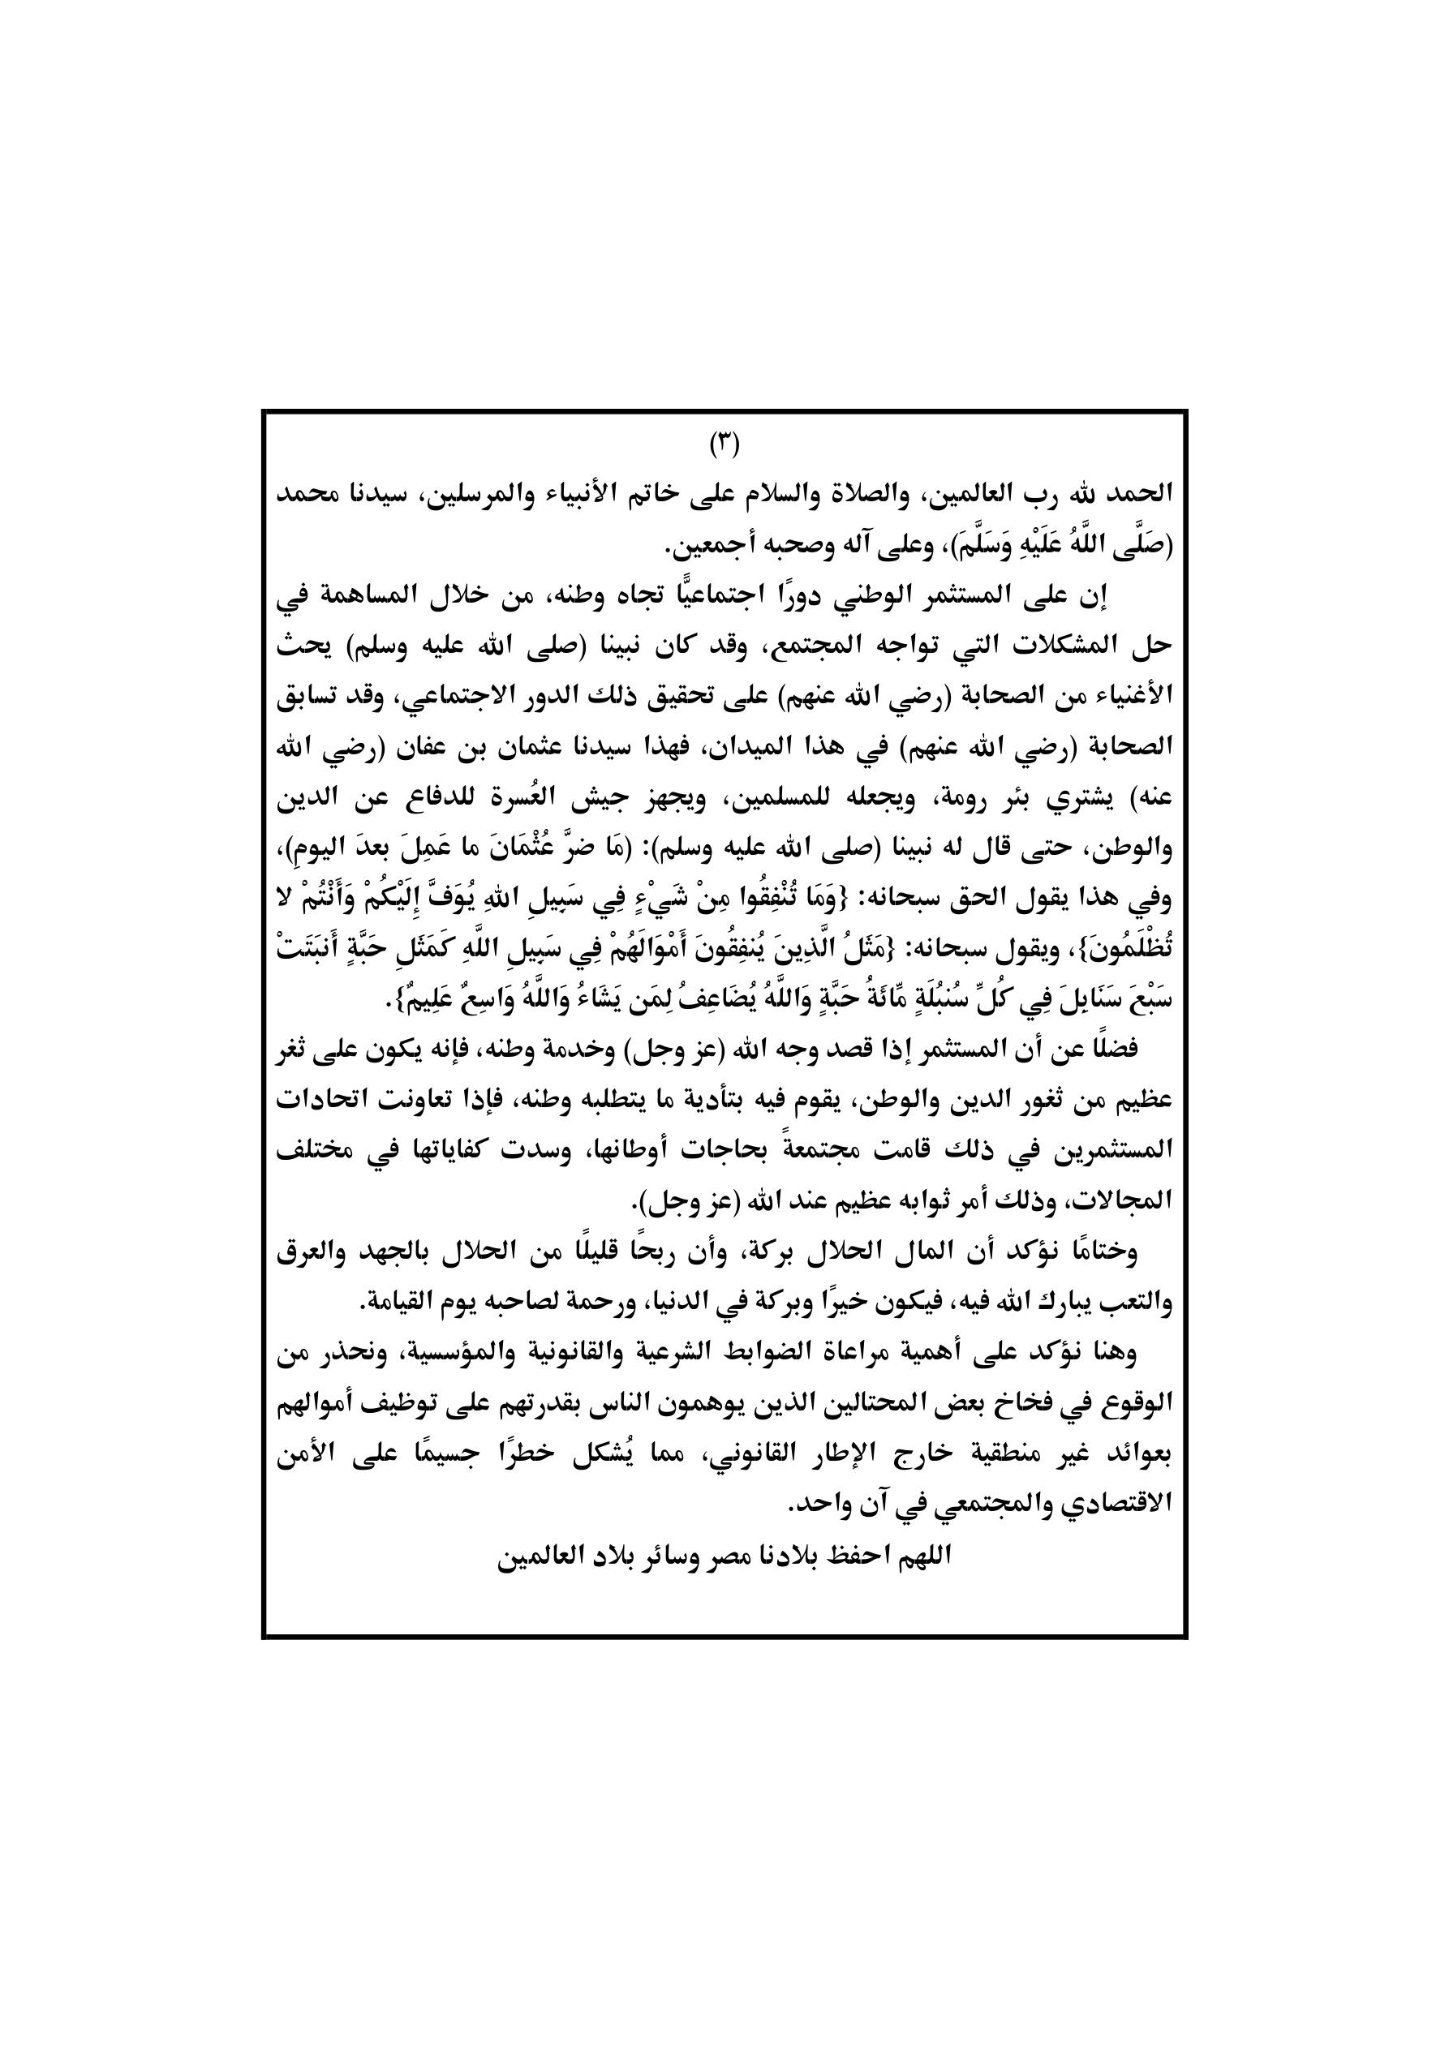 (٣)
الحمد لله رب العالمين، والصلاة والسلام على خاتم الأنبياء والمرسلين، سيدنا محمد
(صَلَّى اللَّهُ عَلَيْهِ وَسَلَّمَ)، وعلى آله وصحبه أجمعين.
إن على المستثمر الوطني دورًا اجتماعيًّا تجاه وطنه، من خلال المساهمة في
حل المشكلات التي تواجه المجتمع، وقد كان نبينا (صلى الله عليه وسلم) يحث
الأغنياء من الصحابة (رضي الله عنهم) على تحقيق ذلك الدور الاجتماعي، وقد تسابق
الصحابة (رضي الله عنهم) في هذا الميدان، فهذا سيدنا عثمان بن عفان (رضي الله
عنه) يشتري بئر رومة، ويجعله للمسلمين، ويجهز جيش العُسرة للدفاع عن الدين
والوطن، حتى قال له نبينا (صلى الله عليه وسلم): (مَا ضرَّ عُثْمَانَ ما عَمِلَ بعدَ اليومِ)،
وفي هذا يقول الحق سبحانه: {وَمَا تُنْفِقُوا مِنْ شَيْءٍ فِي سَبِيلِ اللهِ يُوَفَّ إِلَيْكُمْ وَأَنْتُمْ لا
تُظْلَمُونَ}، ويقول سبحانه: {مَثَلُ الَّذِينَ يُنفِقُونَ أَمْوَالَهُمْ فِي سَبِيلِ اللَّهِ كَمَثَلِ حَبَّةٍ أَنبَتَتْ
سَبْعَ سَنَابِلَ فِي كُلِّ سُنبُلَةٍ مِّائَةُ حَبَّةٍ وَاللَّهُ يُضَاعِفُ لِمَن يَشَاءُ وَاللَّهُ وَاسِعٌ عَلِيمٌ}.
فضلًا عن أن المستثمر إذا قصد وجه الله (عز وجل) وخدمة وطنه، فإنه يكون على ثغر
عظيم من ثغور الدين والوطن، يقوم فيه بتأدية ما يتطلبه وطنه، فإذا تعاونت اتحادات
المستثمرين في ذلك قامت مجتمعةً بحاجات أوطانها، وسدت كفاياتها في مختلف
المجالات، وذلك أمر ثوابه عظيم عند الله (عز وجل).
وختامًا نؤكد أن المال الحلال بركة، وأن ربحًا قليلًا من الحلال بالجهد والعرق
والتعب يبارك الله فيه، فيكون خيرًا وبركة في الدنيا، ورحمة لصاحبه يوم القيامة.
وهنا نؤكد على أهمية مراعاة الضوابط الشرعية والقانونية والمؤسسية، ونحذر من
الوقوع في فخاخ بعض المحتالين الذين يوهمون الناس بقدرتهم على توظيف أموالهم
بعوائد غير منطقية خارج الإطار القانوني، مما يُشكل خطرًا جسيمًا على الأمن
الاقتصادي والمجتمعي في آن واحد.
اللهم احفظ بلادنا مصر وسائر بلاد العالمين